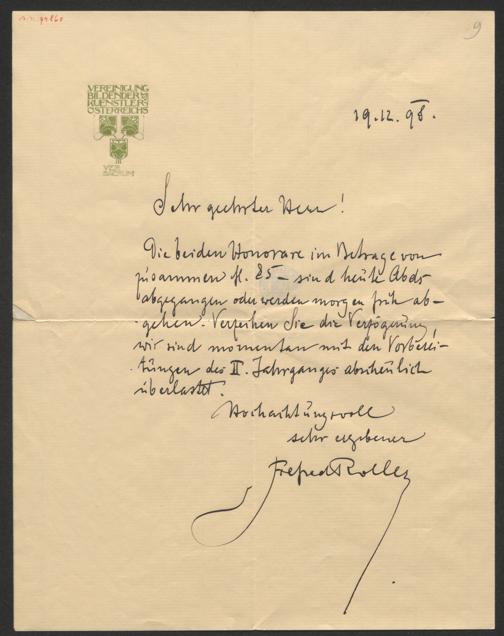 9
VEREINIGUNG
BILDENDER
KUENSTLER
OESTERREICHS
VER
SACRUM
19.12.98.
Sehr geehrter Herr!
Die beiden Honorare im Betrage von
zusammen fl. 85 – sind heute Abds
abgegangen oder werden morgen früh ab-
gehen. Verzeihen Sie die Verzögerung,
wir sind momentan mit den Vorberei-
tungen des II. Jahrganges abscheulich
überlastet.
Hochachtungsvoll
sehr ergebener
Alfred Roller